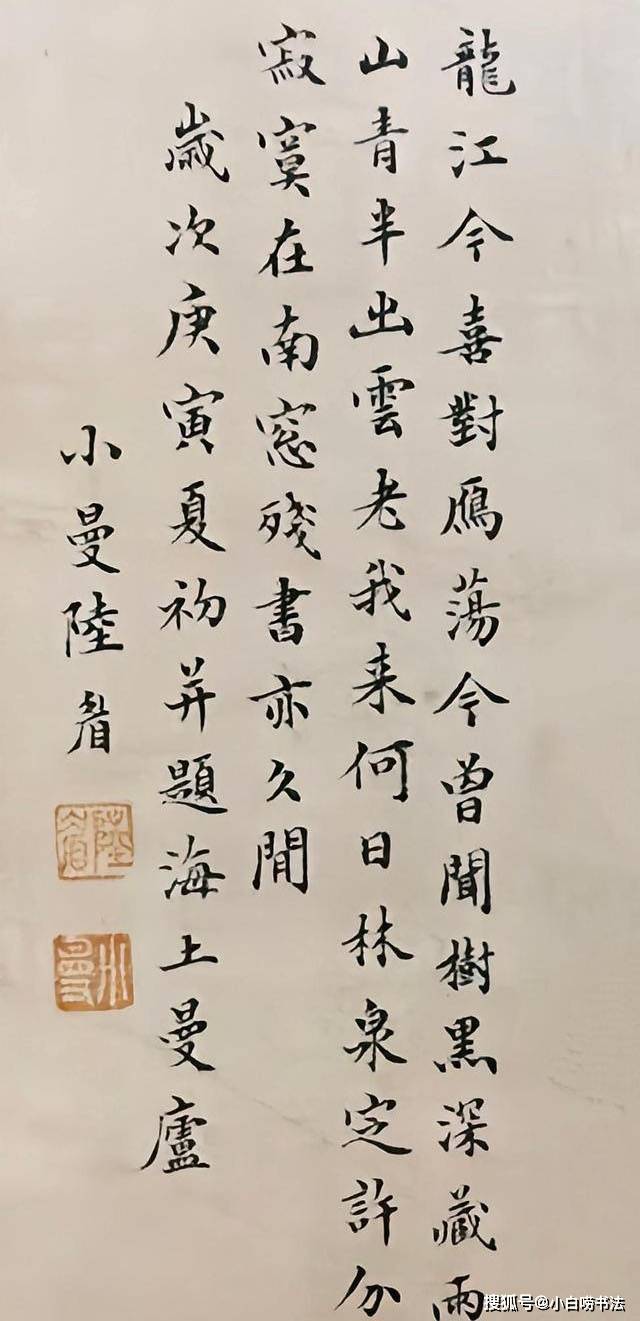 龍江今喜對鴈蕩今曾聞樹黑深藏雨
山青半出雲老我来何日林泉定許分
寂寞在南窓殘書亦久閒
歲次庚寅夏初并題海上曼廬
小曼陸眉
陸眉
小曼
搜狐号@小白唠书法